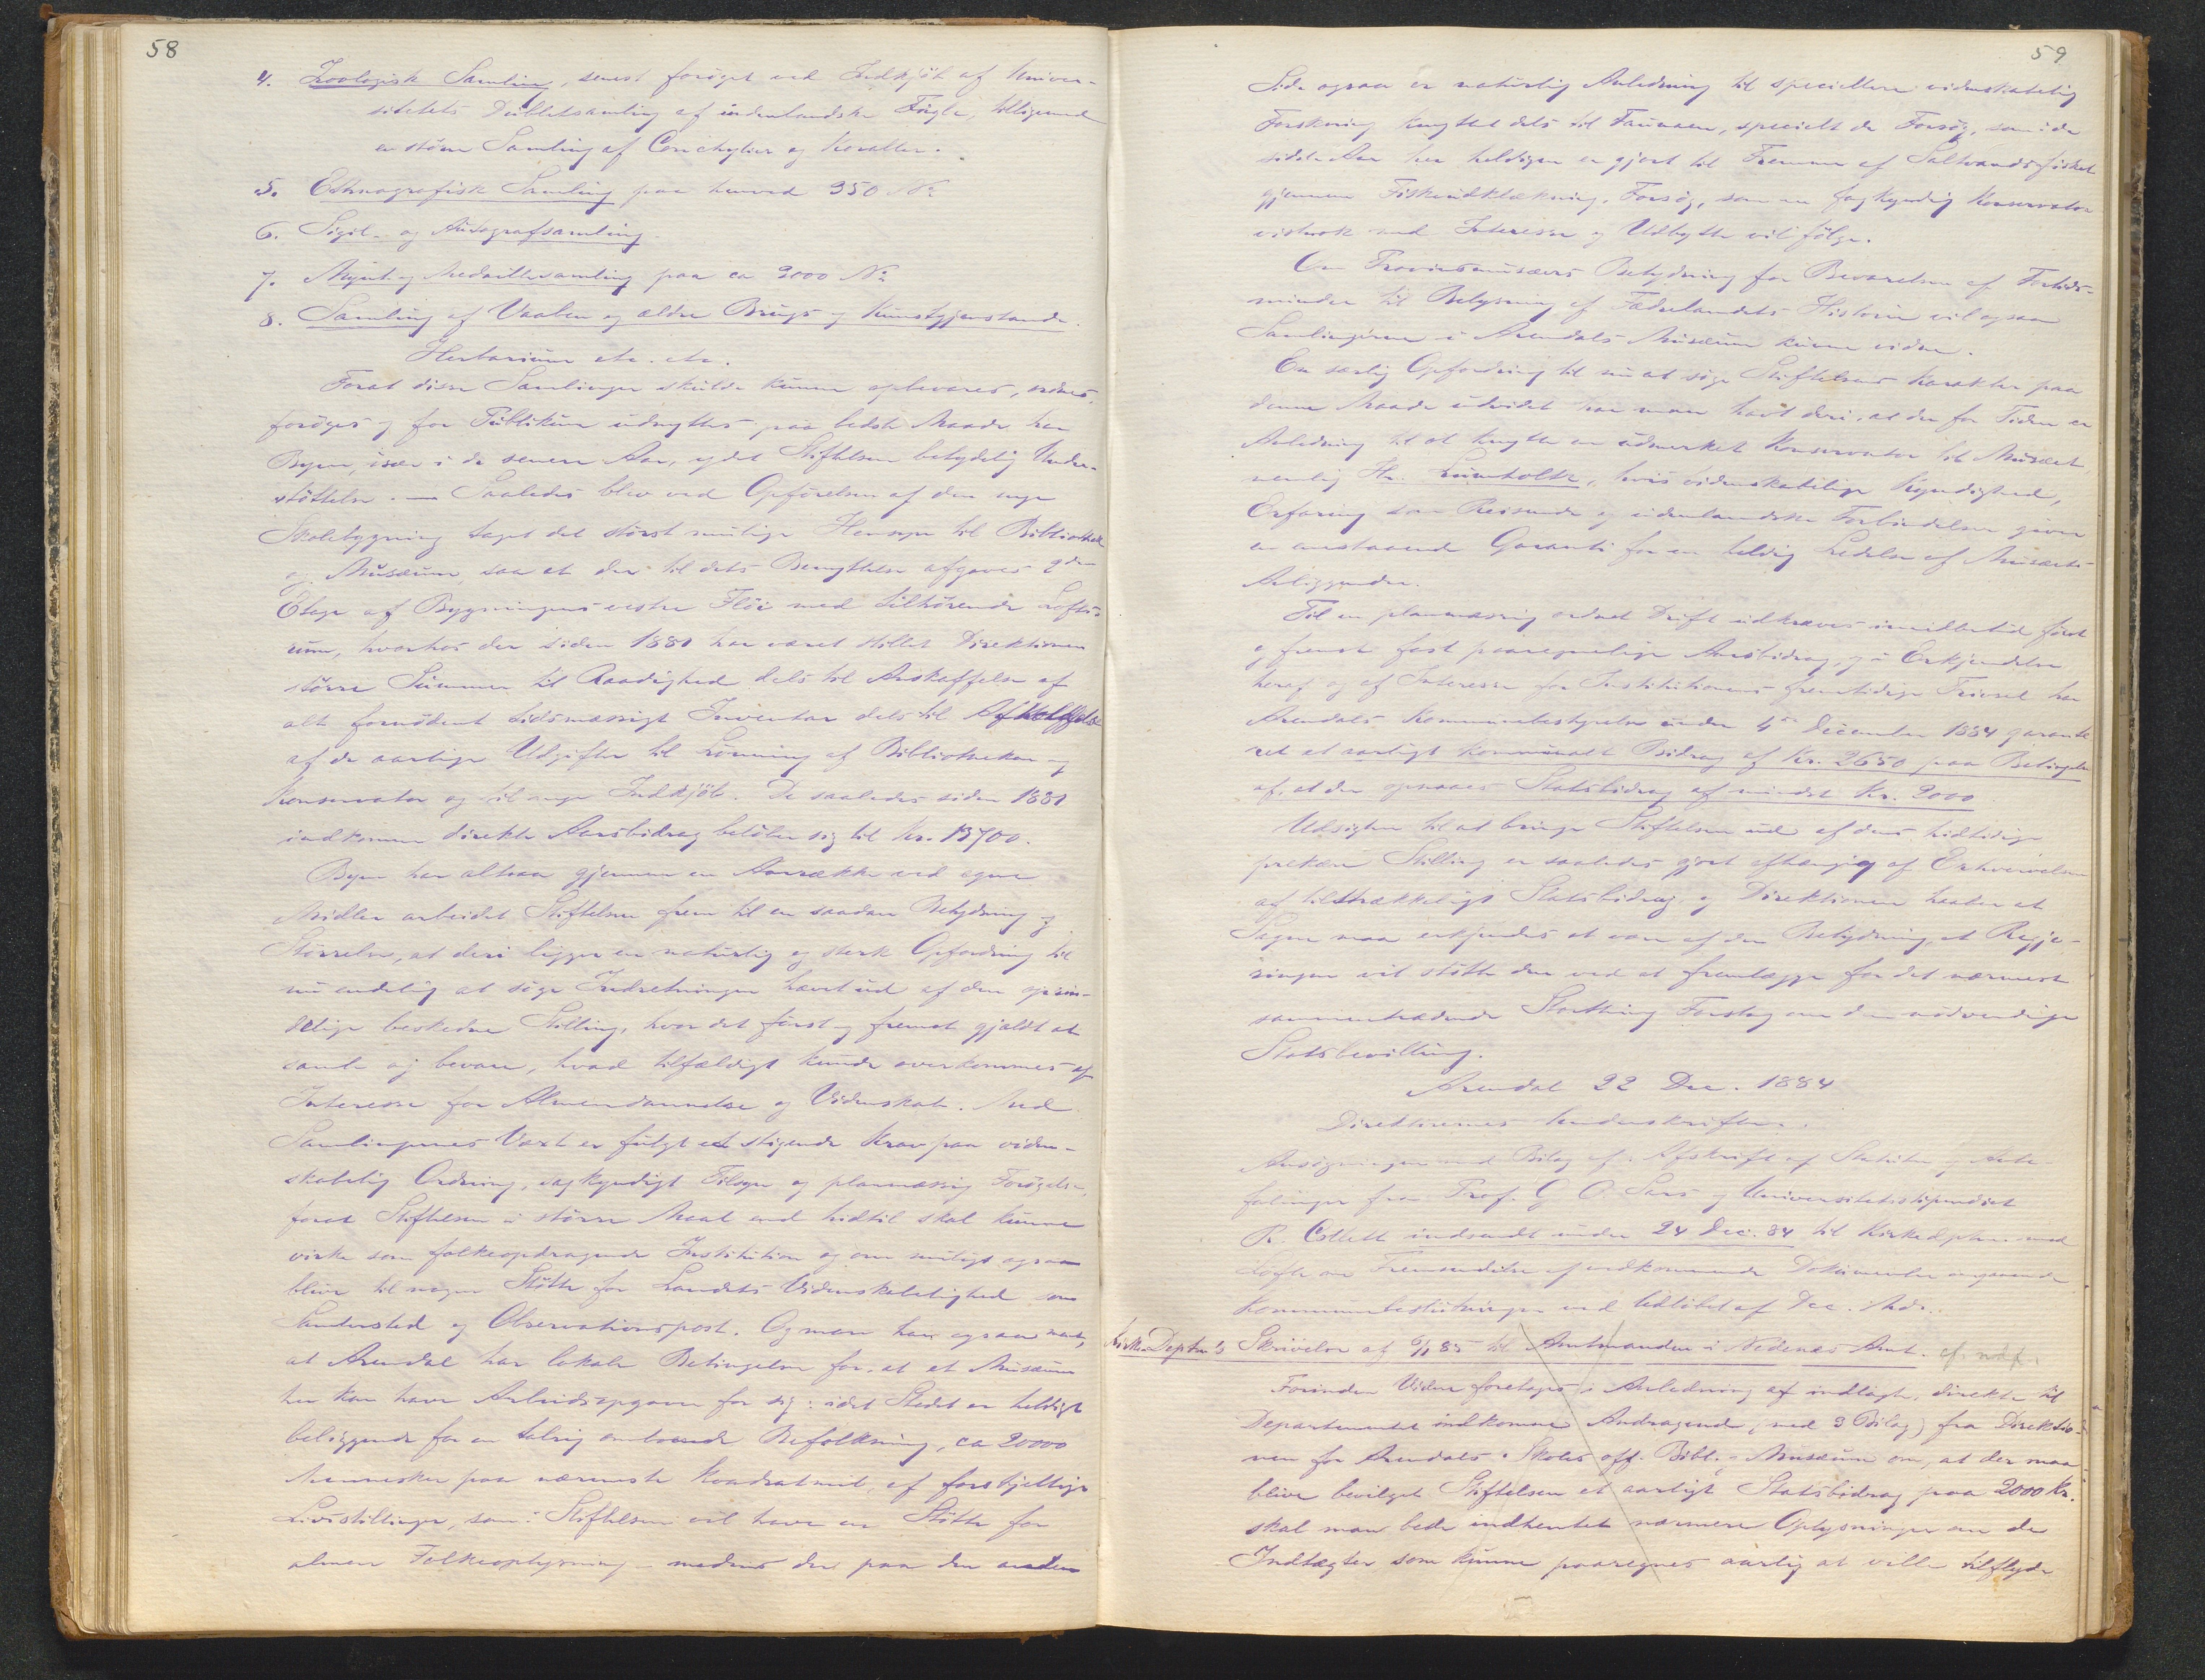 58
4. Zoologisk Samling, senest forøget ved Indkjöb af Univer-
sitetets Dubletsamling af indenlandske Fugle, tilligemed
en större Samling af Conchylier og Koraller.
5. Ethnografisk Samling paa henved 350 No
6. Sigil- og Autografsamling
7. Mynt- og Medaillesamling paa ca 3000 No
8. Samling af Vaaben og ældre Brugs og Kunstgjenstande.
Herbarium etc. etc.
Forat disse Samlinger skulde kunne opbevares, ordnes,
foröges og for Publikum udnyttes paa bedste Maade har
Byen, især i de senere Aar, ydet Stiftelsen betydelig Under-
støttelse. — Saaledes blev ved Opförelsen af den nye
Skolebygning taget det størst mulige Hensyn til Bibliothek
og Musæum, saa at der til dets Benyttelse afgaves 2den
Etage af Bygningens vestre Flöi med tilhörende Lofts-
rum, hvorhos der siden 1880 har været stillet Direktionen
større Summer til Raadighed dels til Anskaffelse af
alt fornödent tidsmæssigt Inventar dels til Afholdelse
af de aarlige Udgifter til Lönning af Bibliothekar og
Konservator og til nye Indkjöb. De saaledes siden 1880
indkomne direkte Aarsbidrag belöber sig til Kr. 13700.
Byen har altsaa gjennem en Aarrække ved egne
Midler arbeidet Stiftelsen frem til en saadan Betydning og
Størrelse, at deri ligger en naturlig og sterk Opfordring til
nu endelig at söge Indretningen hævet ud af den oprin-
delige beskedne Stilling, hvor det först og fremst gjaldt at
samle og bevare, hvad tilfældigt kunde overkommes af
Interesse for Almendannelse og Videnskab. Med
Samlingernes Vext er fulgt et stigende Krav paa viden-
skabelig Ordning, sagkyndigt Tilsyn og planmæssig Forögelse,
forat Stiftelsen i större Maal end hidtil skal kunne
virke som folkeopdragende Institution og om muligt ogsaa
blive til nogen Stötte for Landets Videnskabelighed som
Samlersted og Observationspost. Og man har ogsaa ment,
at Arendal har lokale Betingelser for, at et Musæum
her kan have Arbeidsopgaver for sig: idet Stedet er heldigt
beliggende for en talrig omboende Befolkning, ca 20000
Mennesker paa nærmeste Kvadratmil, af forskjellige
Livsstillinger, som i Stiftelsen vil have en Stötte for
almen Folkeoplysning – medens der paa den anden
59
Side ogsaa er naturlig Anledning til speciellere videnskabelig
Forskning knyttet dels til Faunaen, specielt de Forsög, som i de
sidste Aar her heldigen er gjort til Fremme af Saltvandsfisket
gjennem Fiskeudklækning, Forsög, som en fagkyndig Konservator
vistnok med Interesse og Udbytte vil fölge.
Om Provinsmusæers Betydning for Bevarelsen af Fortids-
minder til Belysning af Fædrelandets Historie vil ogsaa
Samlingerne i Arendals Musæum kunne vidne.
En særlig Opfordring til nu at söge Stiftelsens Karakter paa
denne Maade udvidet har man havt deri, at der for Tiden er
Anledning til at knytte en udmerket Konservator til Musæet,
nemlig Hr. Lumholtz, hvis videnskabelige Kyndighed,
Erfaring som Reisende og udenlandske Forbindelser giver
en Garanti for en heldig Ledelse af Musæets
Anliggender.
Til en planmæssig ordnet Drift udkræves imidlertid först
og fremst fast paaregnelige Aarsbidrag, og i Erkjendelse
heraf og af Interesse for Institutionens fremtidige Trivsel har
Arendals Kommunebestyrelse under 4de December 1884 garante
ret et aarligt kommunalt Bidrag af Kr. 2650 paa Betingelse
af, at der opnaaes Statsbidrag af mindst Kr. 2000
Udsigten til at bringe Stiftelsen ud af dens hidtidige
prekære Stilling er saaledes gjort afhængig af Erhvervelsen
af tilstrækkeligt Statsbidrag, og Direktionen haaber at
Sagen maa erkjendes at være af den Betydning, at Regje-
ringen vil stötte den ved at fremlægge for det nærmest
sammentrædende Storthing Forslag om den nödvendige
Statsbevilling.
Arendal 22 Dec. 1884
Direktionens Underskrifter.
Ansögningen med Bilag af: Afskrift af Statuter og Anbe
falinger fra Prof. G. O. Sars og Universitetsstipendiat
R. Collett indsendt under 24 Dec. 84 til Kirkedptm. med
Löfte om Fremsendelse af vedkommende Dokumenter angaaende
Kommunebeslutningen ved Udlöbet af Dec. Mdr.
Kirke Deptm's Skrivelse af 6/1 85 til Amtmanden i Nedenæs Amt.
Forinden Videre foretages i Anledning af indlagte, direkte til
Departementet indkomne Andragende (med 3 Bilag) fra Direktio-
nen for Arendals Skoles off. Bibl. & Musæum om, at der maa
blive bevilget Stiftelsen et aarligt Statsbidrag paa 2000 Kr.
skal man bede indhentet nærmere Oplysninger om de
Indtægter som kunne paaregnes aarlig at ville tilflyde